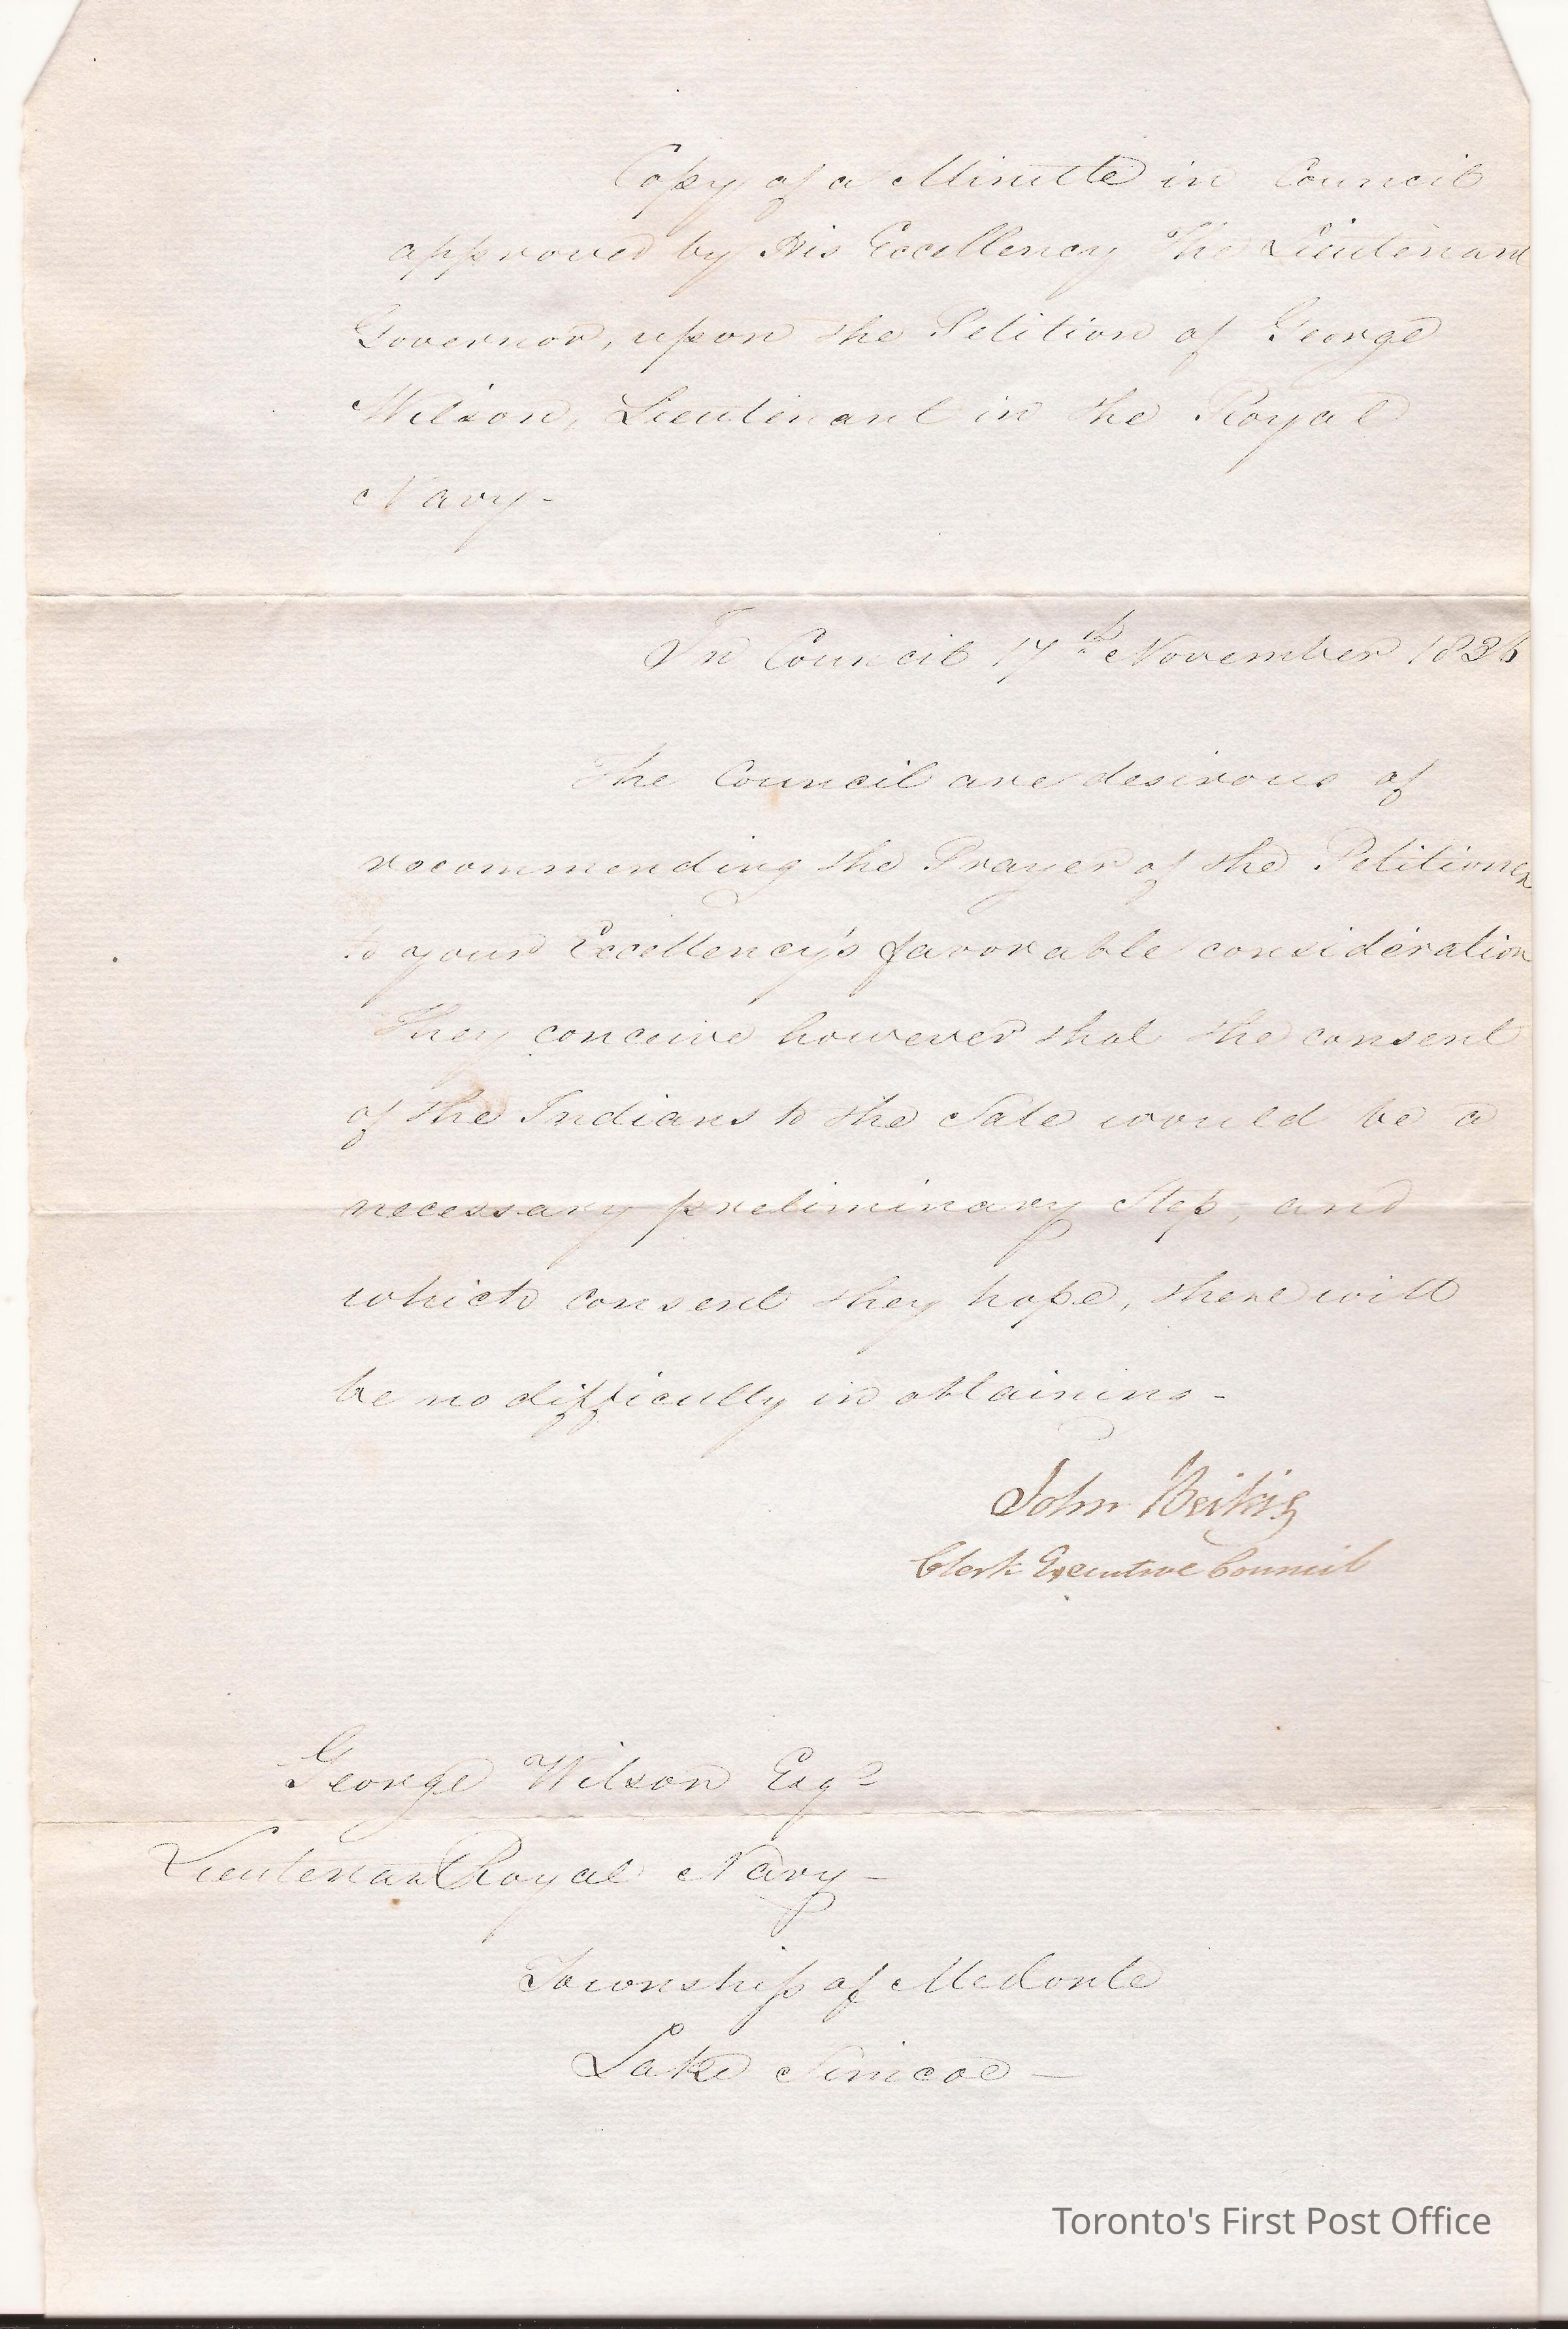 Copy of a Minute in Council
approved by His Excellency The Lieutenant
Governor, upon the Petition of George
Wilson, Lieutenant in the Royal
Navy-
In Council 17th November 1836
The Council are desirous of
recommending the Prayer of the Petitioner
to your Excellency's favorable consideration
They conceive however that the consent
of the Indians to the Sale would be a
necessary preliminary Step, and
which consent they hope, there will
be no difficulty in obtaining-
John Beikie
Clerk Executive Council
George Wilson Esqr
Lieutenant Royal Navy-
Township of Medonte
Lake Simcoe-
Toronto's First Post Office